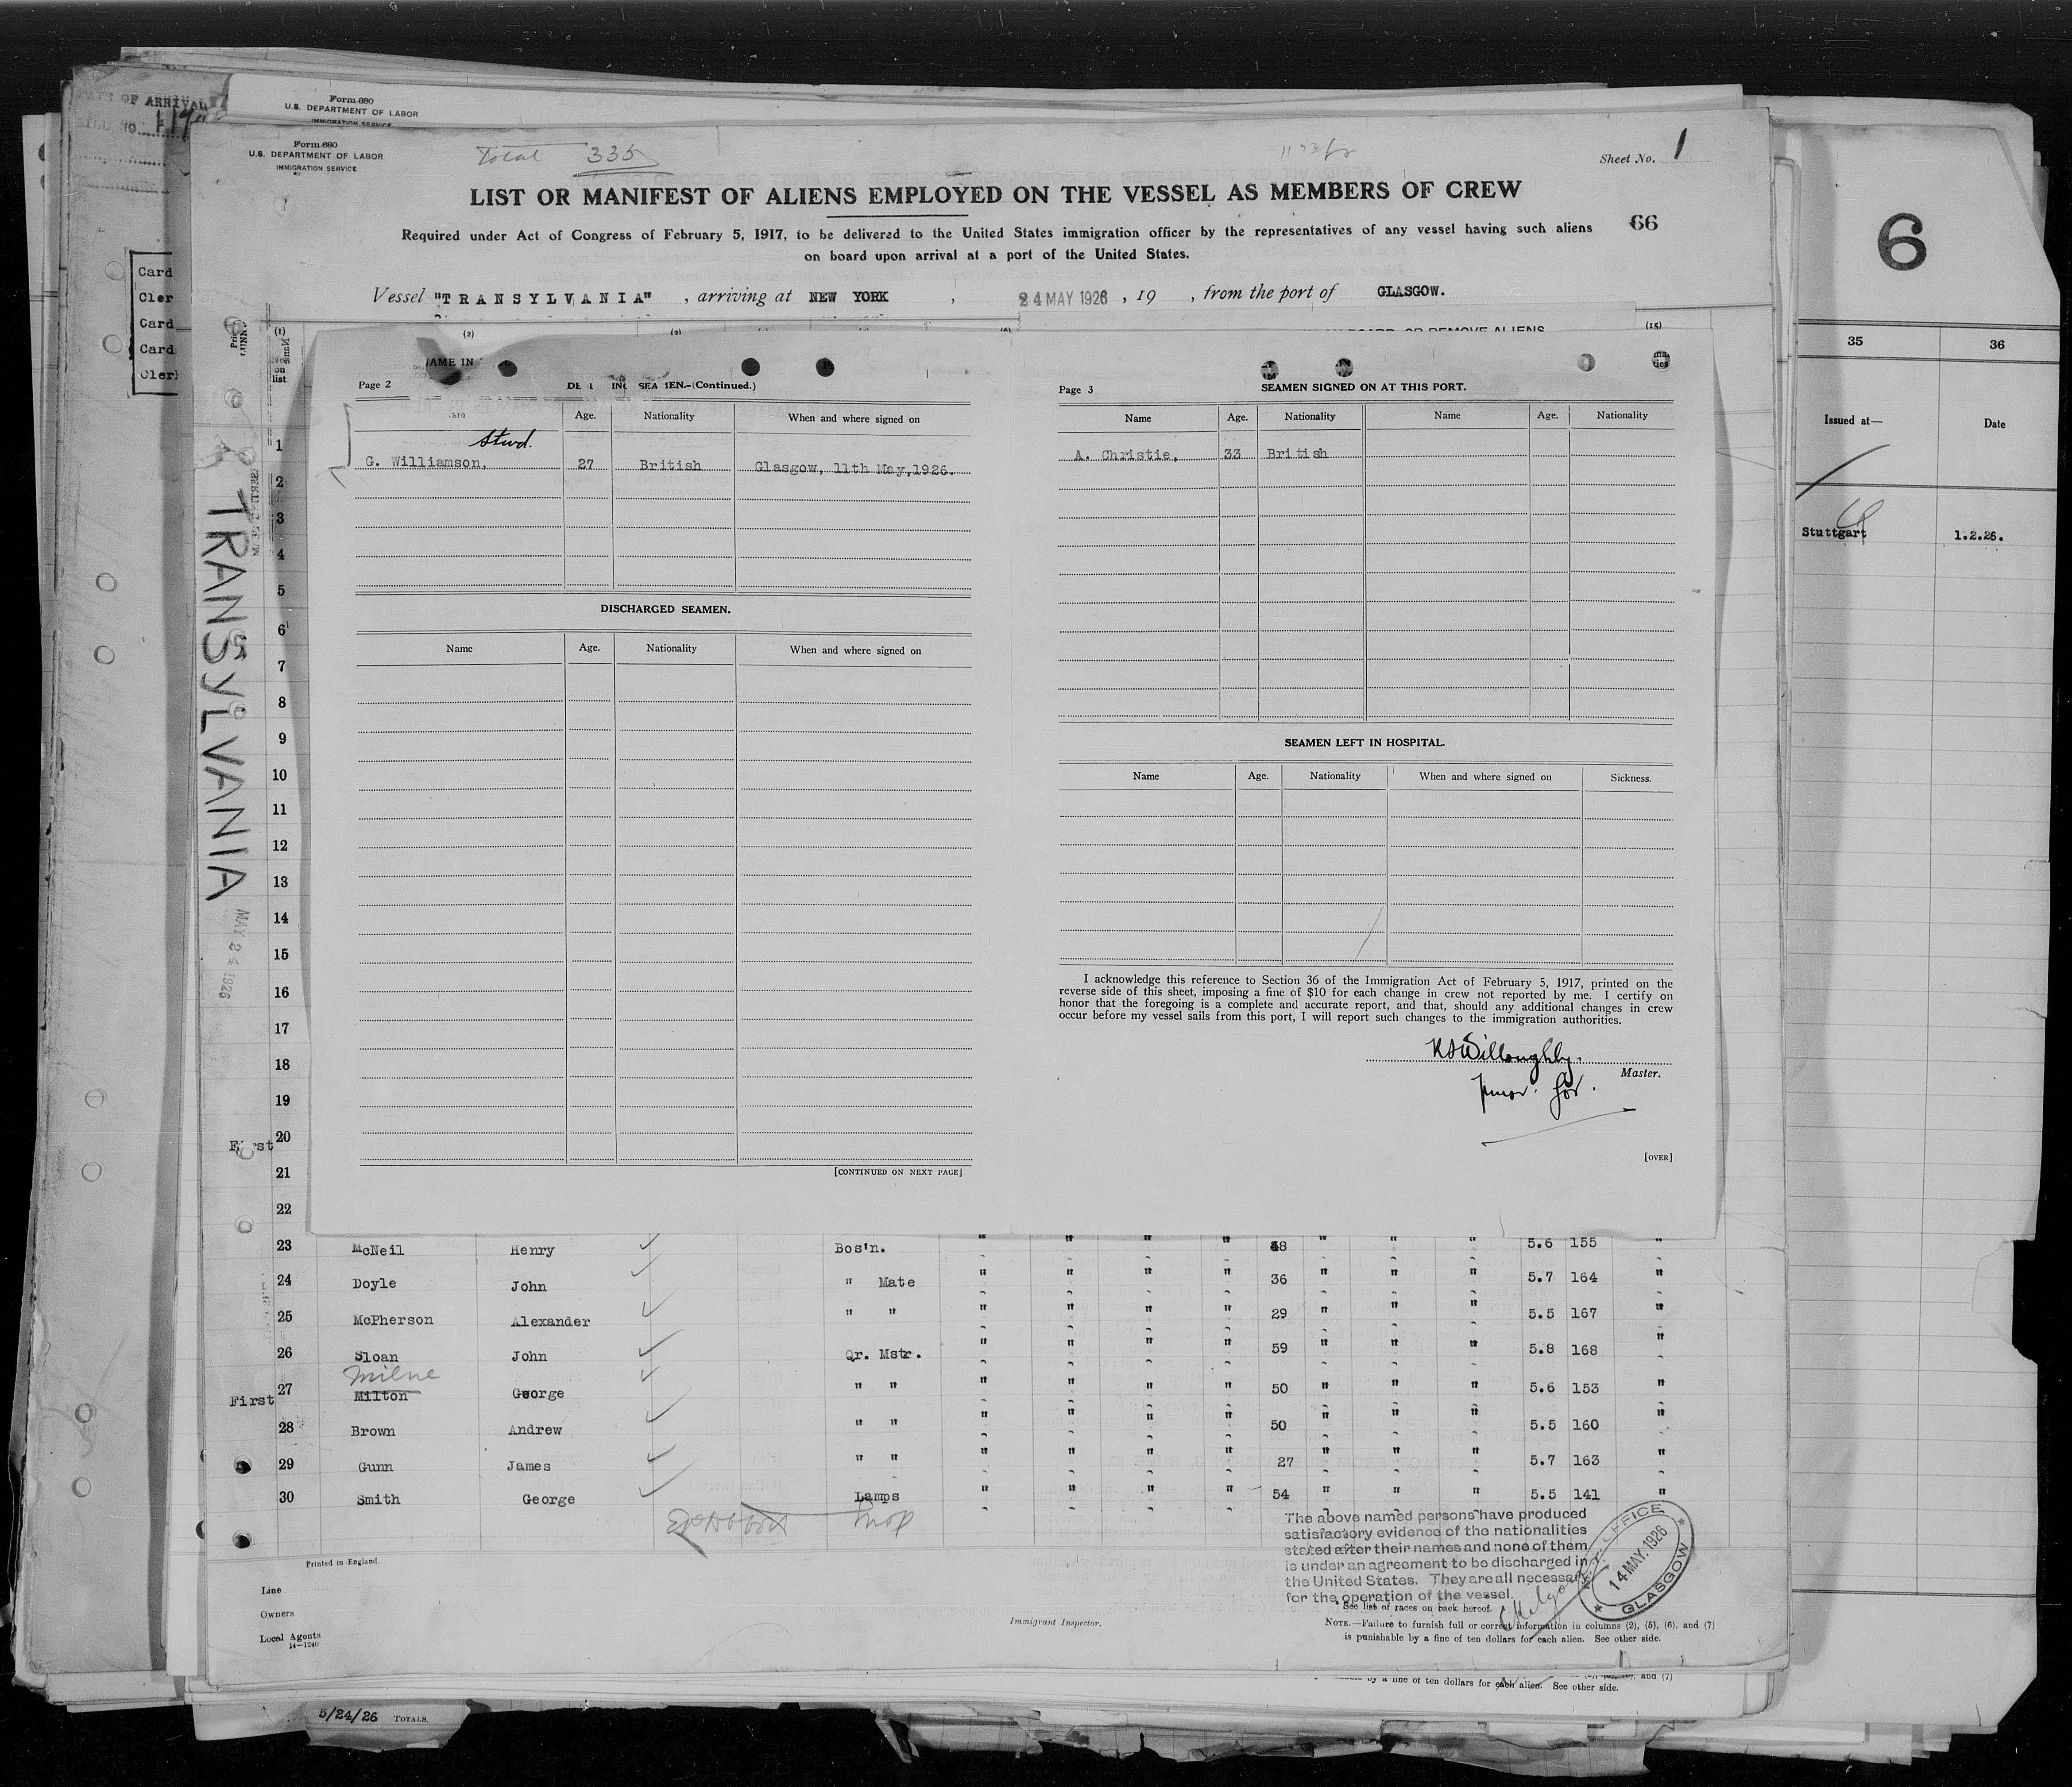 Form 680
U.S. DEPARTMENT OF LABOR
IMMIGRATION SERVICE
Form 680
U.S. DEPARTMENT OF LABOR
IMMIGRATION SERVICE
Total 335
Sheet No. 1
LIST OR MANIFEST OF ALIENS EMPLOYED ON THE VESSEL AS MEMBERS OF CREW
Required under Act of Congress of February 5, 1917, to be delivered to the United States immigration officer by the representatives of any vessel having such aliens
on board upon arrival at a port of the United States.
66
Vessel "TRANSYLVANIA", arriving at NEW YORK, 24 MAY 1926, 19 , from the port of GLASGOW.
OF ARRIVAL
Card
Cler
Card
Card
Cler
TRANSYLVANIA
MAY 24 1926
(1) (2) (3) (15)
No. on list
Page 2 SEAMEN.-(Continued.)
Age. Nationality When and where signed on
Stwd.
G. Williamson, 27 British Glasgow, 11th May, 1926.
DISCHARGED SEAMEN.
Name Age. Nationality When and where signed on
[CONTINUED ON NEXT PAGE]
Page 3 SEAMEN SIGNED ON AT THIS PORT.
Name Age. Nationality Name Age. Nationality
A. Christie, 33 British
SEAMEN LEFT IN HOSPITAL.
Name Age. Nationality When and where signed on Sickness.
I acknowledge this reference to Section 36 of the Immigration Act of February 5, 1917, printed on the
reverse side of this sheet, imposing a fine of $10 for each change in crew not reported by me. I certify on
honor that the foregoing is a complete and accurate report, and that, should any additional changes in crew
occur before my vessel sails from this port, I will report such changes to the immigration authorities.
Willoughby.
Master.
[OVER]
1
2
3
4
5
6
7
8
9
10
11
12
13
14
15
16
17
18
19
First 20
21
22
23 McNeil Henry Bos'n. " " " " 48 " " " 5.6 155 "
24 Doyle John " Mate " " " " 36 " " " 5.7 164 "
25 McPherson Alexander " " " " " " 29 " " " 5.5 167 "
26 Sloan John Qr. Mstr. " " " " 59 " " " 5.8 168 "
Milne
First 27 Milton George " " " " " " 50 " " " 5.6 153 "
28 Brown Andrew " " " " " " 50 " " " 5.5 160 "
29 Gunn James " " " " " " 27 " " " 5.7 163 "
30 Smith George Lamps " " " " 54 " " " 5.5 141 "
The above named persons have produced
satisfactory evidence of the nationalities
stated after their names and none of them
is under an agreement to be discharged in
the United States. They are all necessary
for the operation of the vessel.
OFFICE
14 MAY. 1926
GLASGOW
Printed in England.
Line
Owners
Local Agents
14—1240
Immigrant Inspector.
* See list of races on back hereof.
NOTE.—Failure to furnish full or correct information in columns (2), (5), (6), and (7)
is punishable by a fine of ten dollars for each alien. See other side.
and (7)
by a fine of ten dollars for each alien. See other side.
5/24/26 TOTALS.
6
35 36
Issued at— Date
Stuttgart 1.2.26.